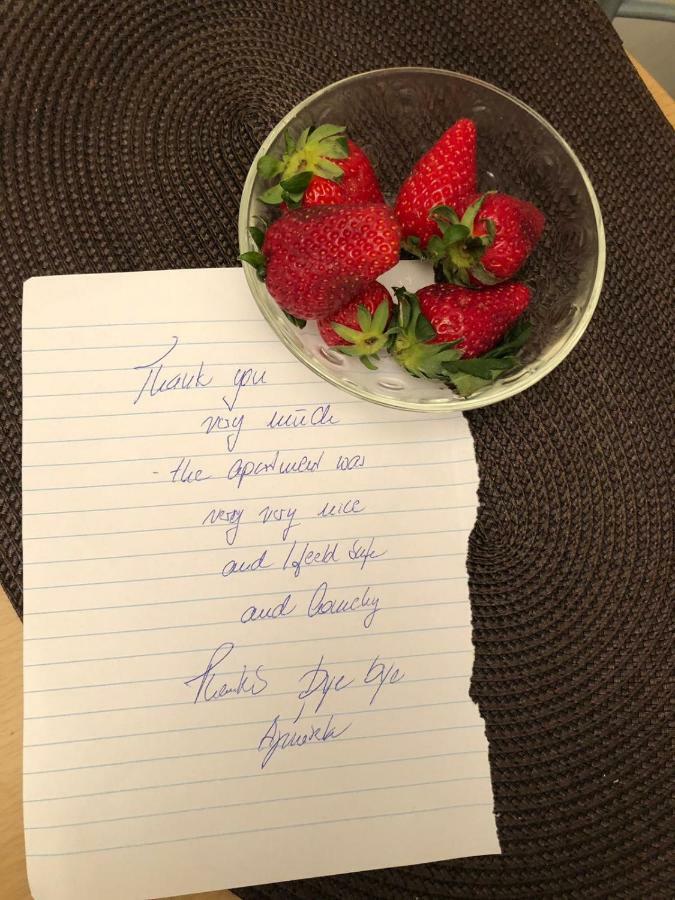 Thank you
very much
- the apartment was
very very nice
and I feeld safe
and
Thanks bye bye
Agnieszka